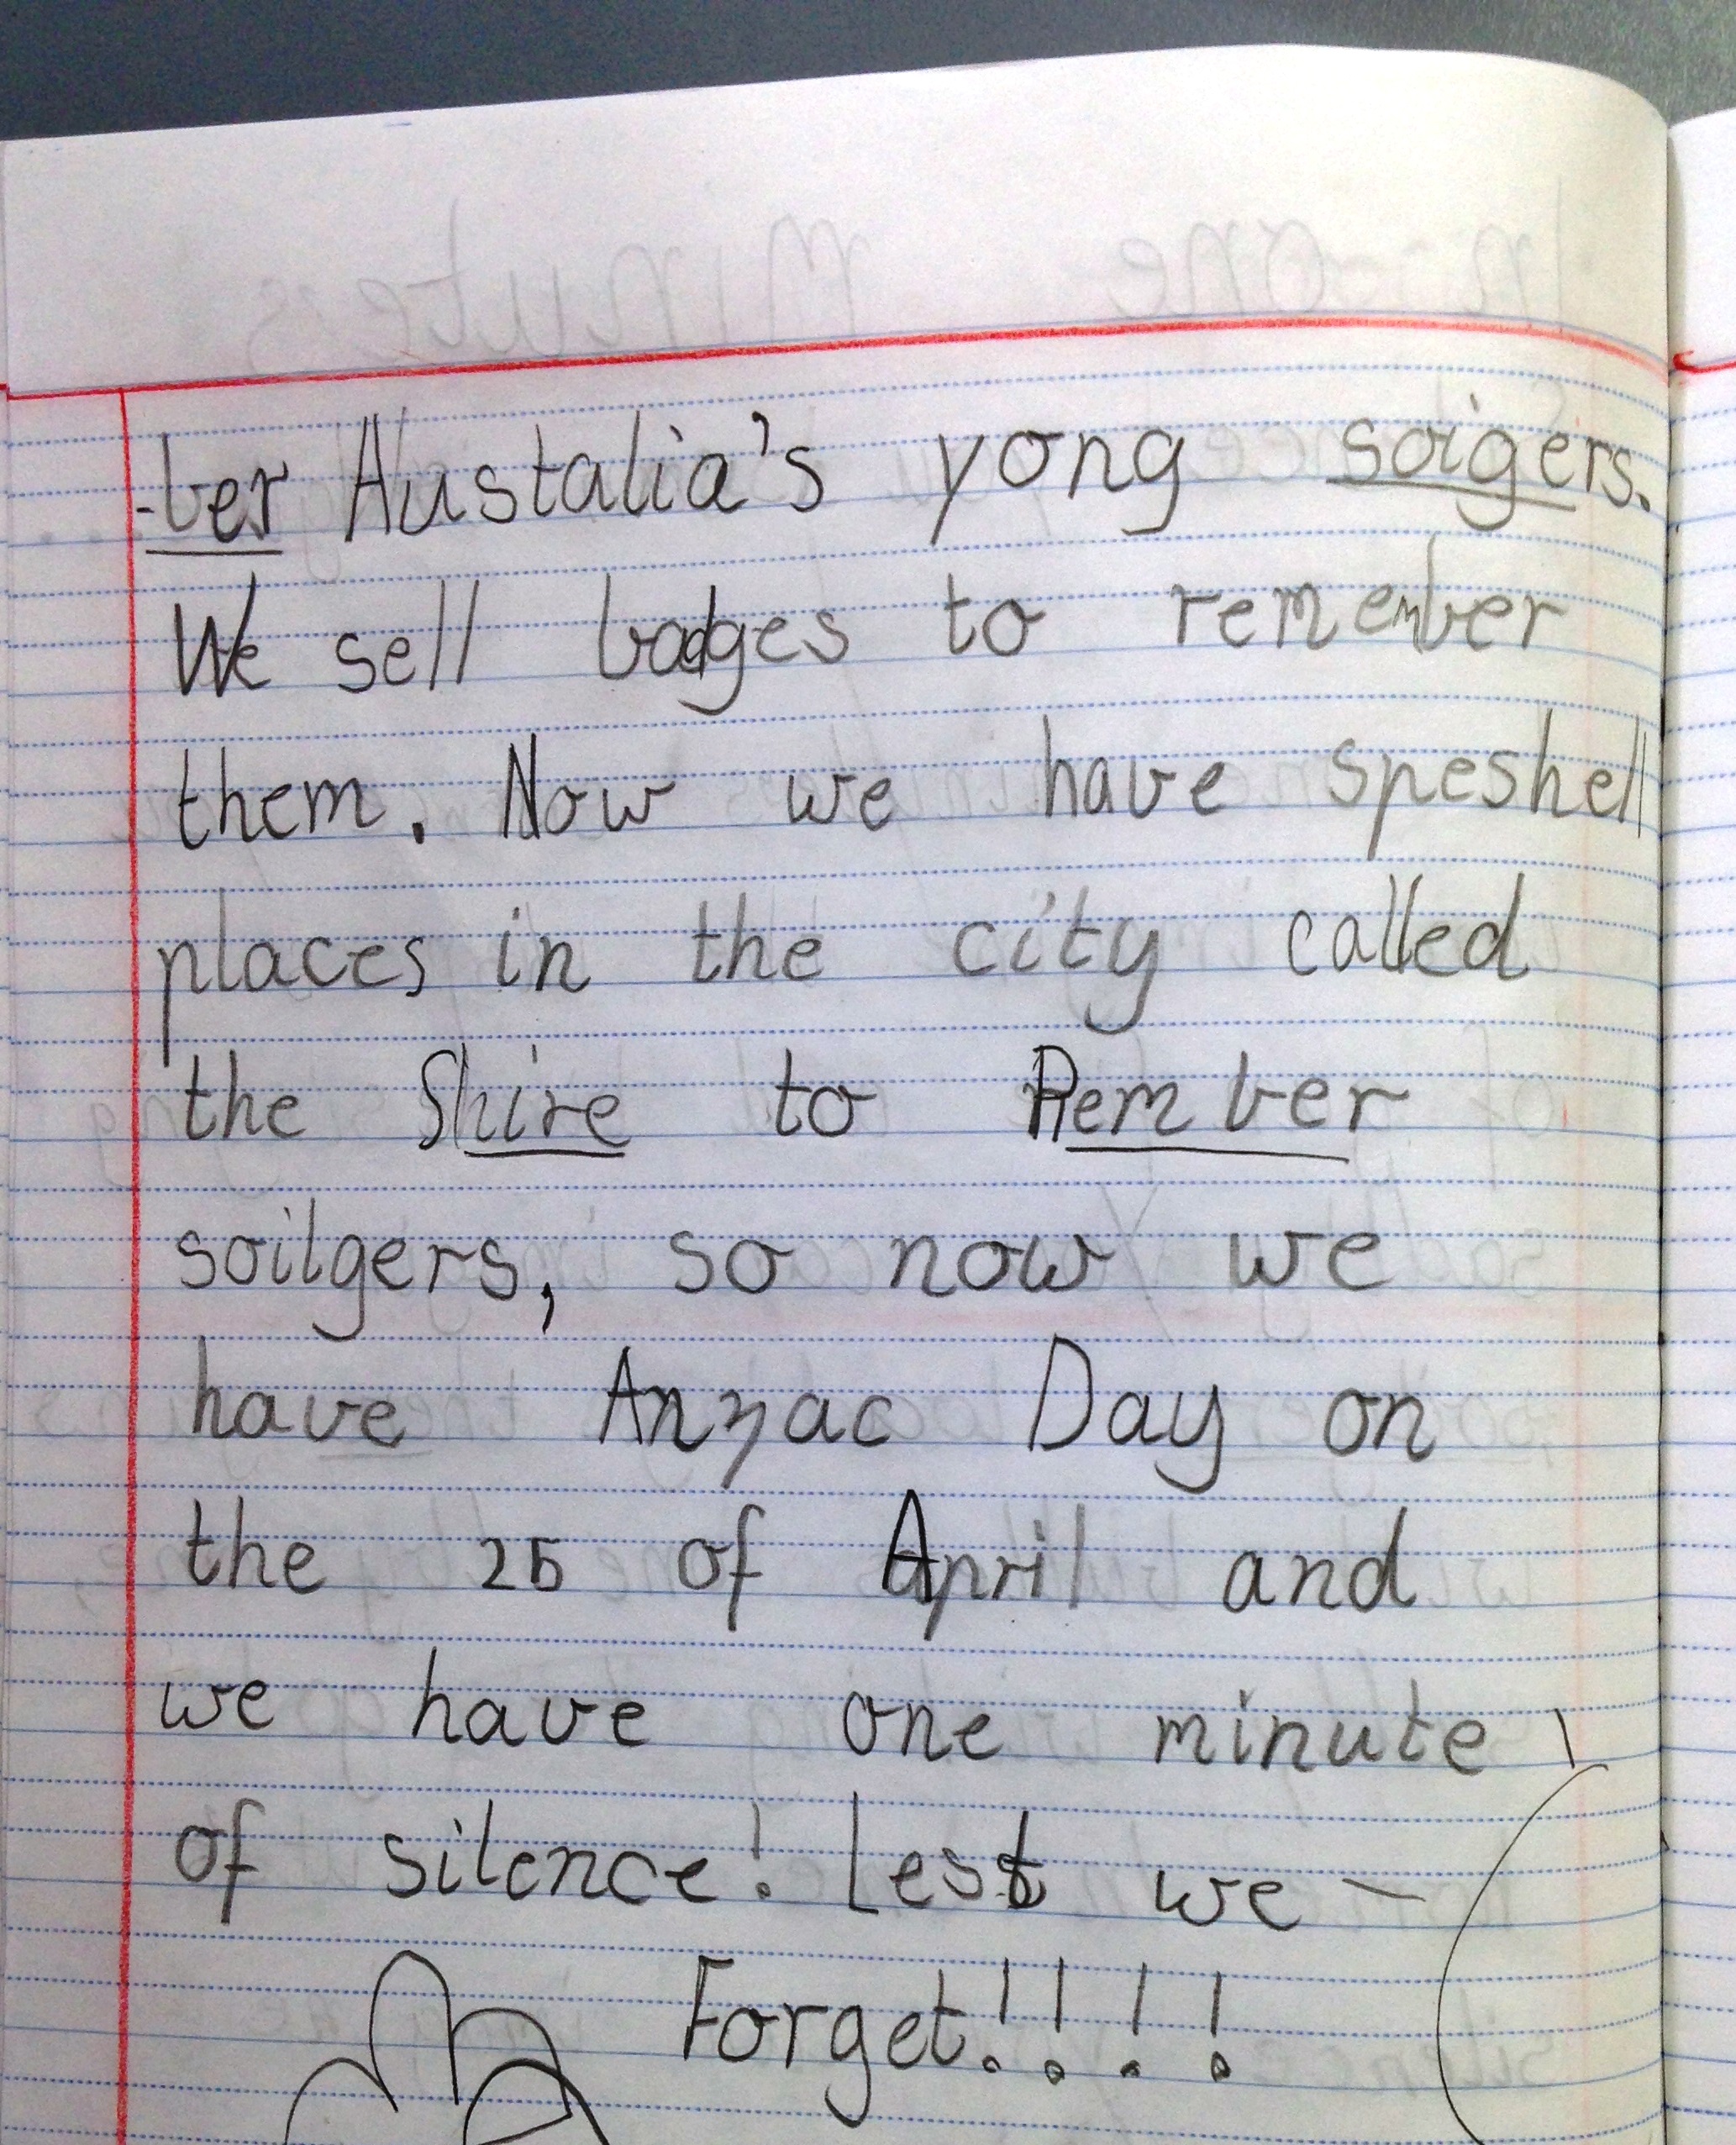 In one minutes
-ber Austalia's yong soigers.
We sell badges to remember
them. Now we have speshell
places in the city called
the Shire to Rember
soilgers, so now we
have Anzac Day on
the 25 of April and
we have one minute
of silence! Lest we -
Forget!!!!